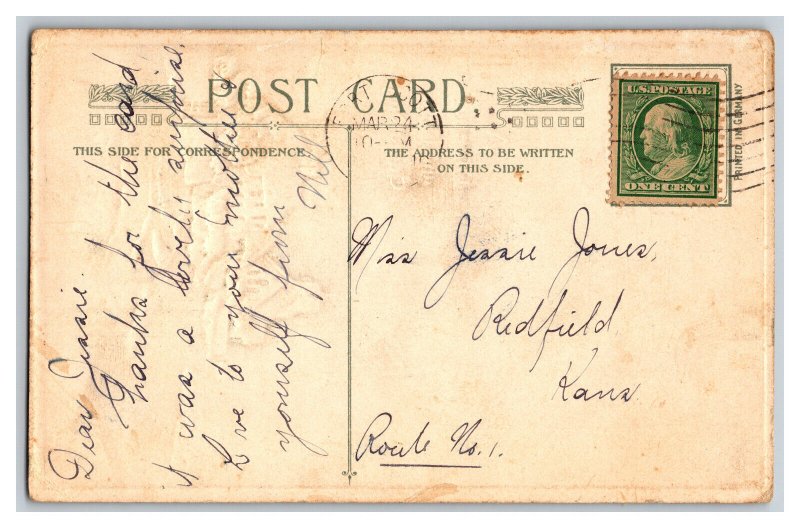 POST CARD.
THIS SIDE FOR CORRESPONDENCE.
THE ADDRESS TO BE WRITTEN
ON THIS SIDE.
U.S. POSTAGE
ONE CENT
PRINTED IN GERMANY
MAR 24
Dear Jessie.
Thanks for the card
it was a lovely
Love to your mother &
yourself from Nell
Miss Jessie Jones,
Redfield
Kans
Route No. 1.